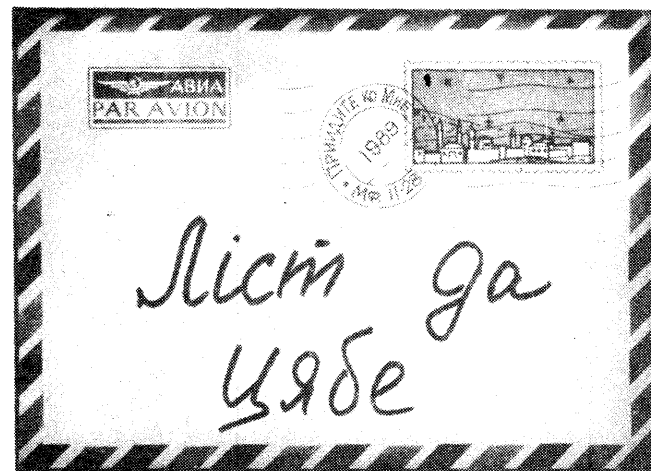 АВИА
PAR AVION
ПРИИДИТЕ КО МНЕ
1989
МФ 11·28
Ліст да
цябе